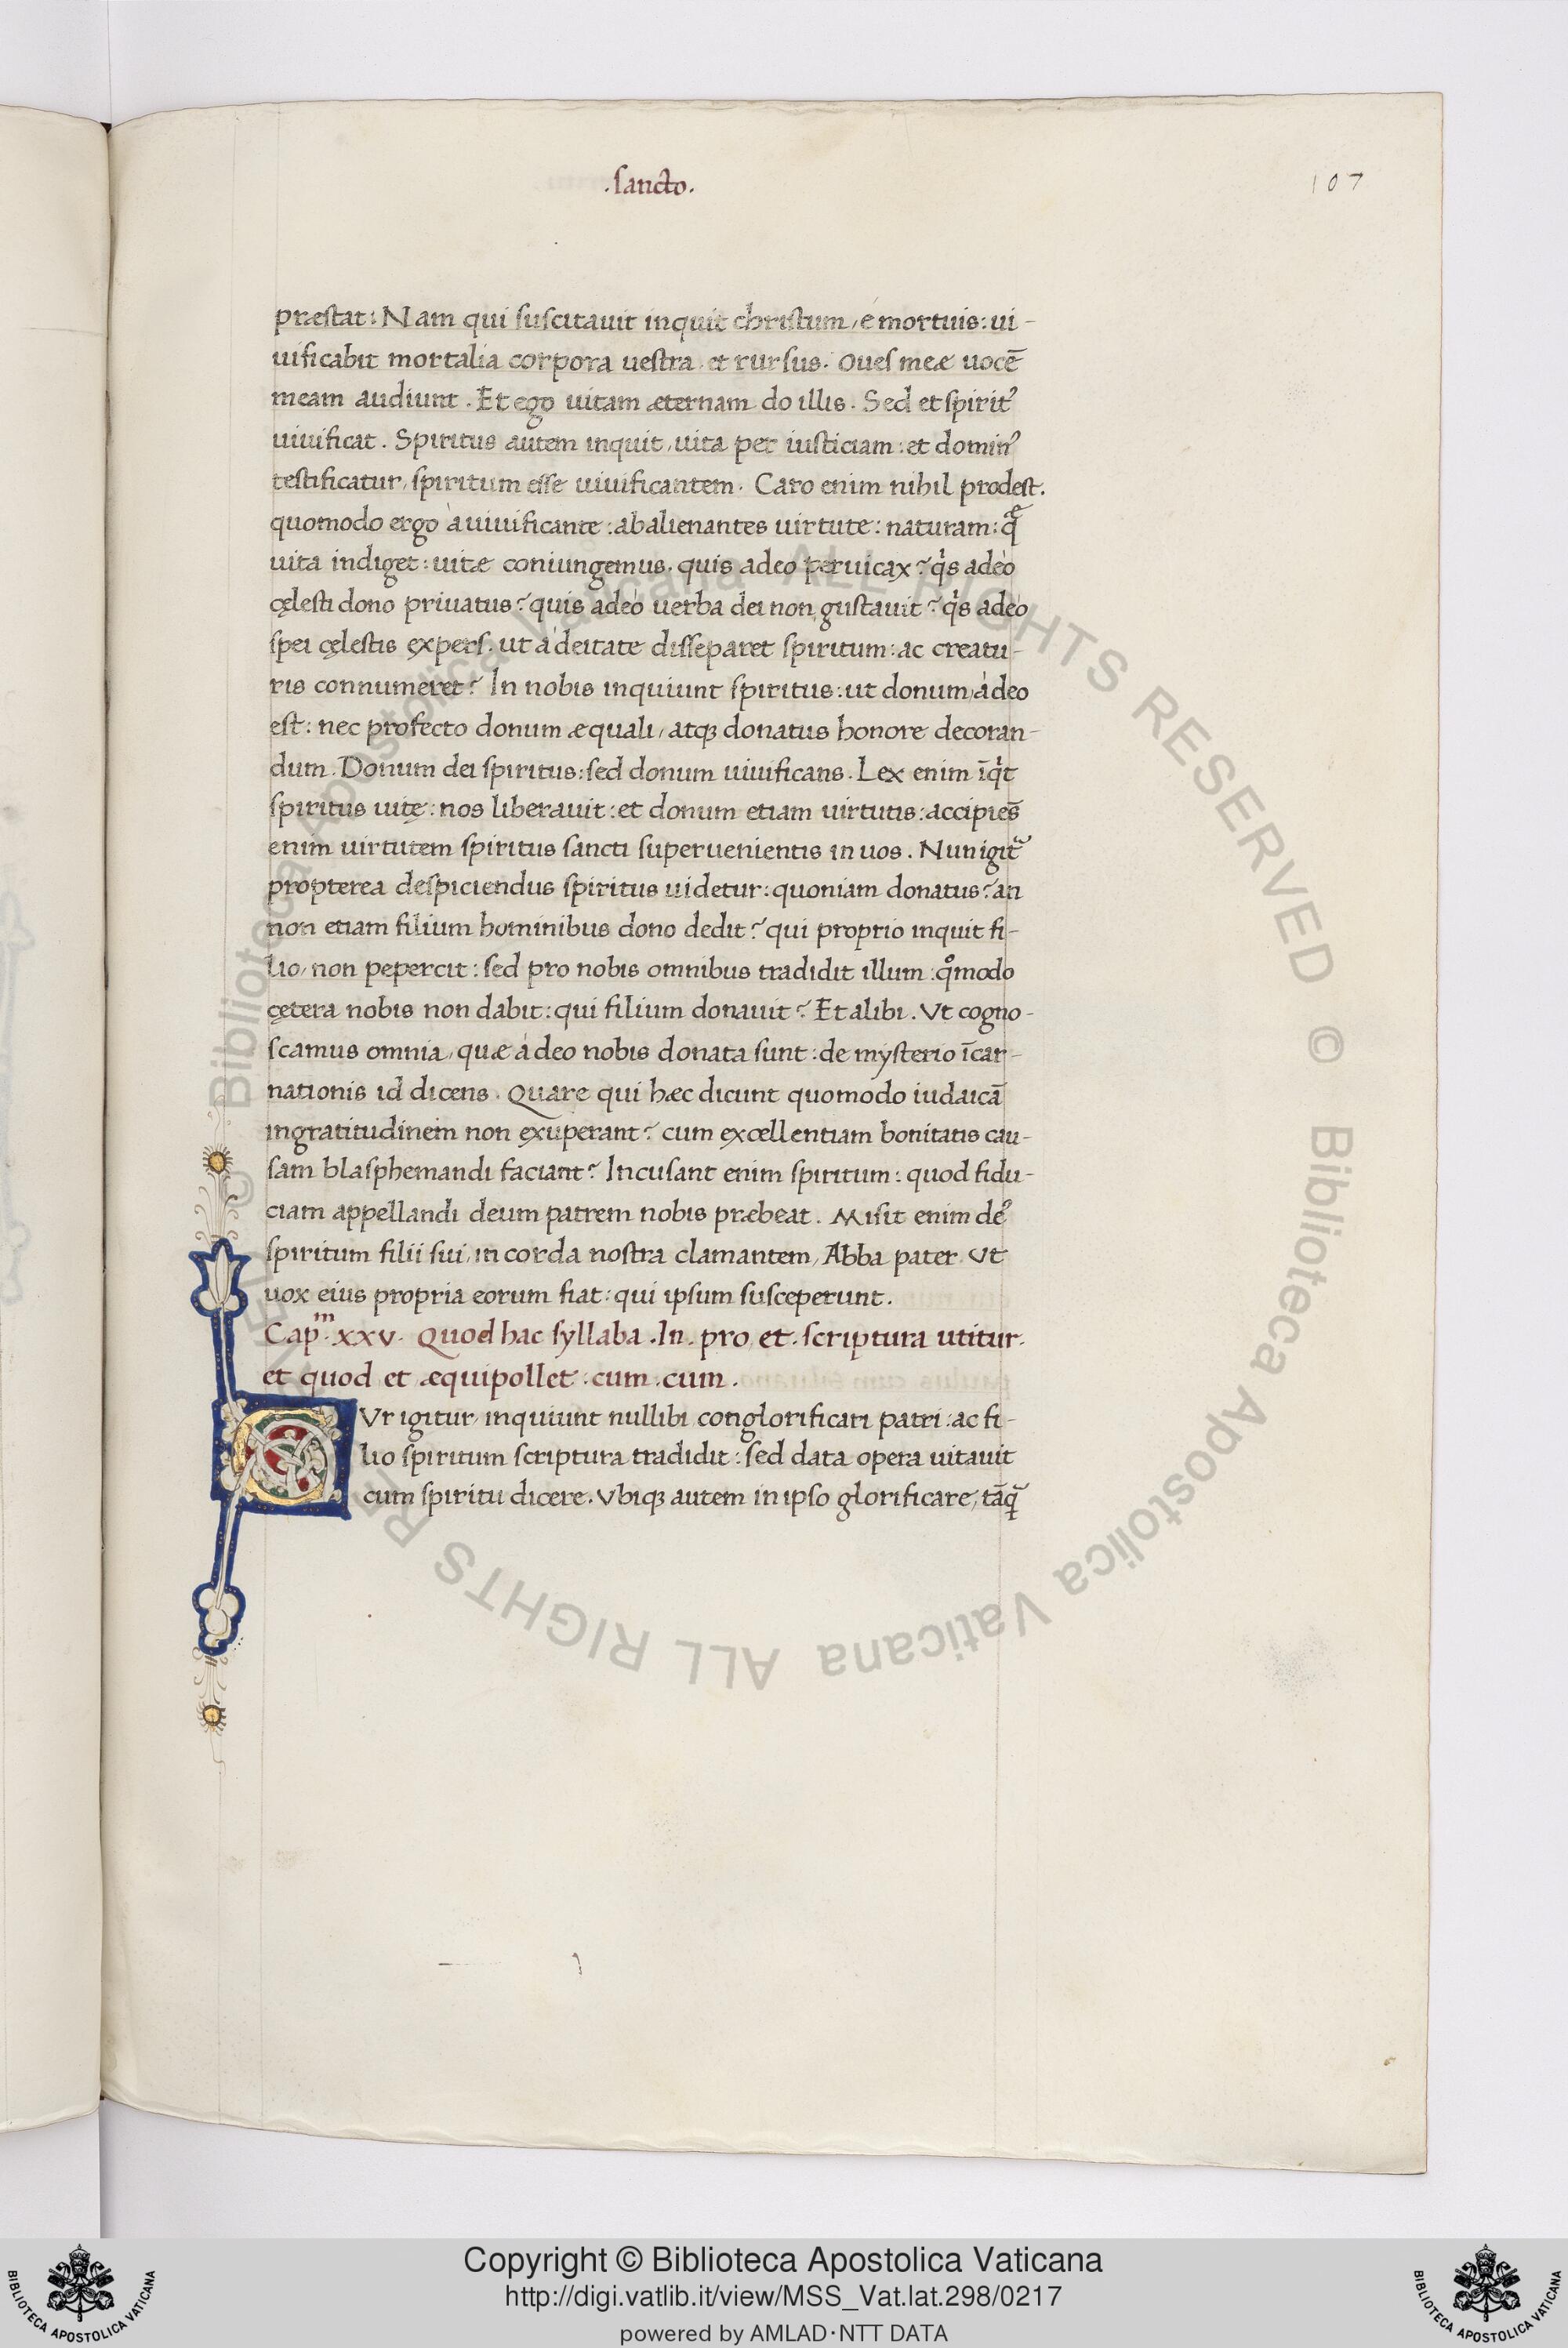 .sancto.
107
præstat: Nam qui suscitauit inquit christum, é mortuis: ui-
uificabit mortalia corpora uestra. et rursus. Oues meæ uocē
meam audiunt. Et ego uitam æternam do illis. Sed et spiritꝰ
uiuificat. Spiritus autem inquit, uita per iusticiam: et dominꝰ
testificatur, spiritum esse uiuificantem. Caro enim nihil prodest.
quomodo ergo à uiuificante: abalienantes uirtute: naturam: qᷓ
uita indiget: uitæ coniungemus. quis adeo peruicax? qͥs adeò
cęlesti dono priuatus? quis adeò uerba dei non gustauit? qͥs adeò
spei cęlestis expers. ut à deitate disseparet spiritum: ac creatu-
ris connumeret? In nobis inquiunt spiritus: ut donum, à deo
est: nec profecto donum æquali, atqꝫ donatus honore decoran-
dum. Donum dei spiritus: sed donum uiuificans. Lex enim īqͥt
spiritus uitę: nos liberauit: et donum etiam uirtutis: accipies̄
enim uirtutem spiritus sancti superuenientis in uos. Nun igitᷓ
propterea despiciendus spiritus uidetur: quoniam donatus? an
non etiam filium hominibus dono dedit? qui proprio inquit fi-
lio, non pepercit: sed pro nobis omnibus tradidit illum: qͦmodo
cętera nobis non dabit: qui filium donauit? Et alibi. Vt cogno-
scamus omnia, quæ à deo nobis donata sunt: de mysterio īcar-
nationis id dicens. Quare qui hæc dicunt quomodo iudaicā
ingratitudinem non exuperant? cum excellentiam bonitatis cau-
sam blasphemandi faciant? Incusant enim spiritum: quod fidu-
ciam appellandi deum patrem nobis præbeat. Misit enim deꝰ
spiritum filii sui, in corda nostra clamantem, Abba pater. Vt
uox eius propria eorum fiat: qui ipsum susceperunt.
Capᵐ. xxv. Quod hac syllaba .In. pro et. scriptura utitur.
et quod et æquipollet .cum .cum.
CVr igitur inquiunt nullibi conglorificari patri: ac fi-
lio spiritum scriptura tradidit: sed data opera uitauit
cum spiritu dicere. Vbiqꝫ autem in ipso glorificare, tāqᷓ
© Biblioteca Apostolica Vaticana ALL RIGHTS RESERVED © Biblioteca Apostolica Vaticana ALL RIGHTS RESERVED
Copyright © Biblioteca Apostolica Vaticana
http://digi.vatlib.it/view/MSS_Vat.lat.298/0217
powered by AMLAD·NTT DATA
BIBLIOTECA APOSTOLICA VATICANA
BIBLIOTECA APOSTOLICA VATICANA